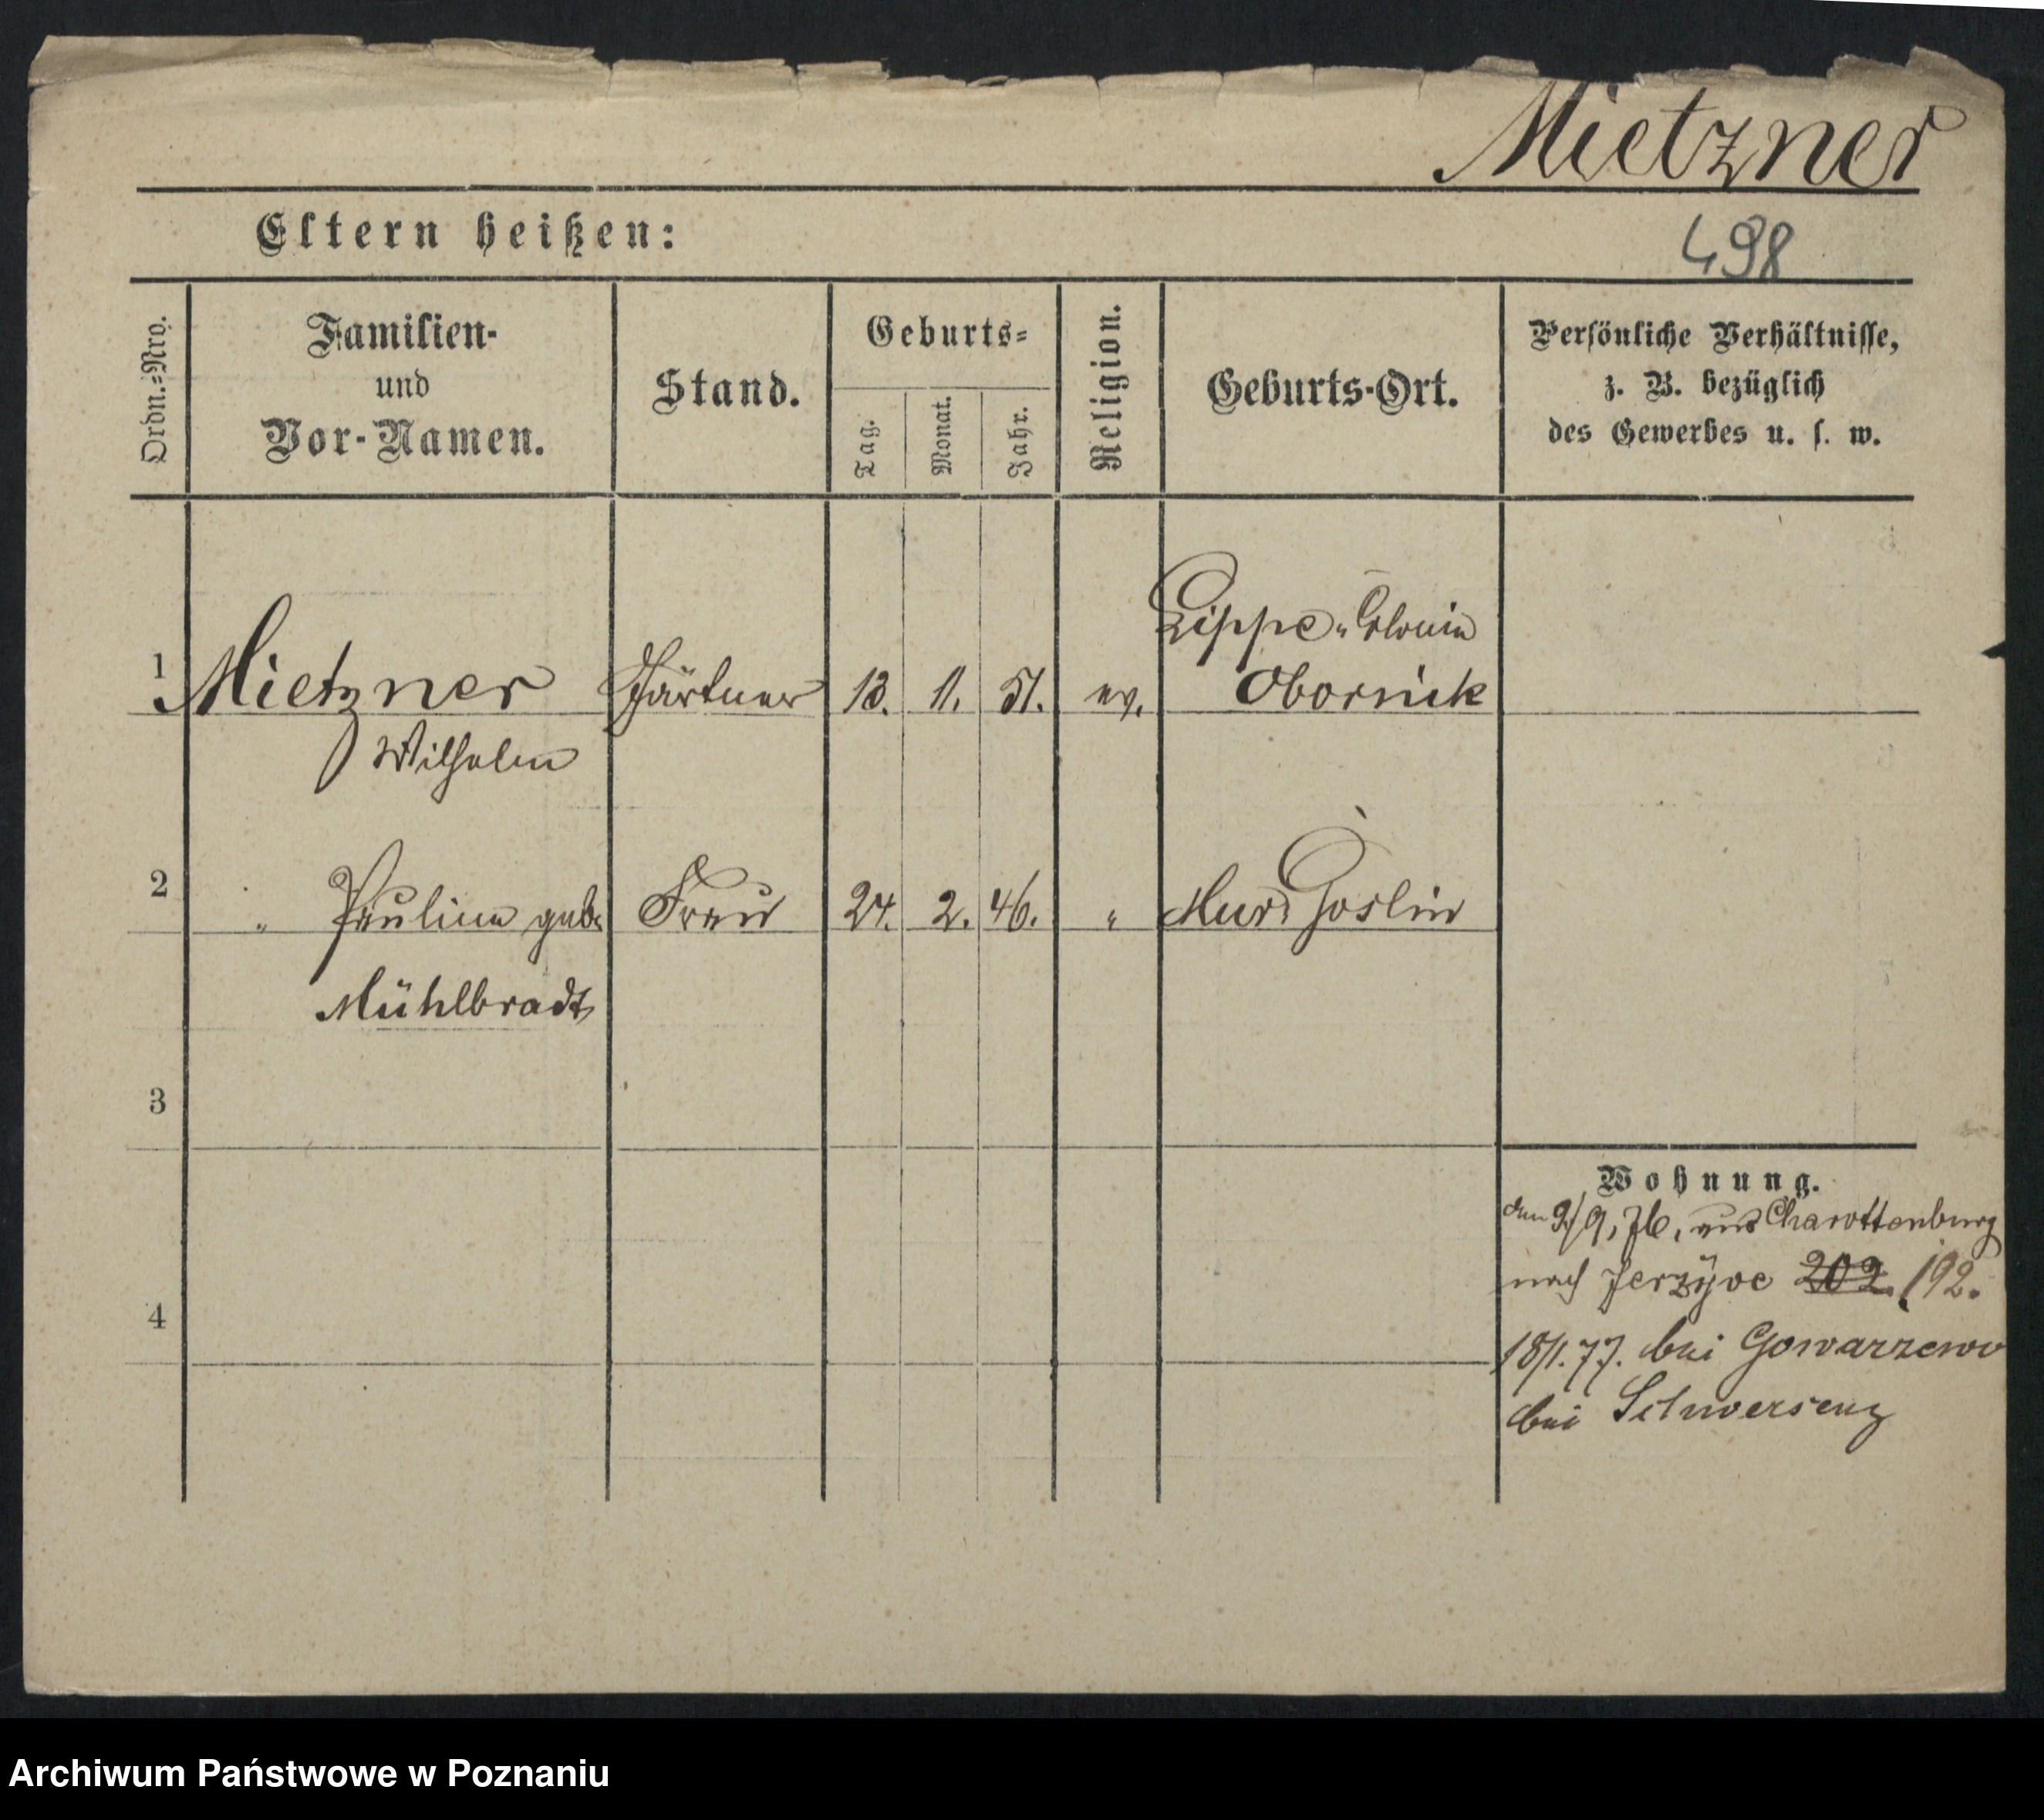 Mietzner
Eltern heißen:
498
Ordn.=Nro.
Familien-
und
Vor-Namen.
Stand.
Geburts=
Tag.
Monat.
Jahr.
Religion.
Geburts-Ort.
Persönliche Verhältnisse,
z. B. bezüglich
des Gewerbes u. s. w.
Lippe-Colonie
1 Mietzner Gärtner 13. 11. 51. ev. Obornick
Wilhelm
2 " Pauline geb. Frau 24. 2. 46. " Mur. Goslin
Mühlbradt
3
Wohnung.
den 9/9. 76. aus Charottenburg
nach Jerzyce 202. 192.
4
18/1. 77. bei Gowarzewo
bei Schwersenz
Archiwum Państwowe w Poznaniu